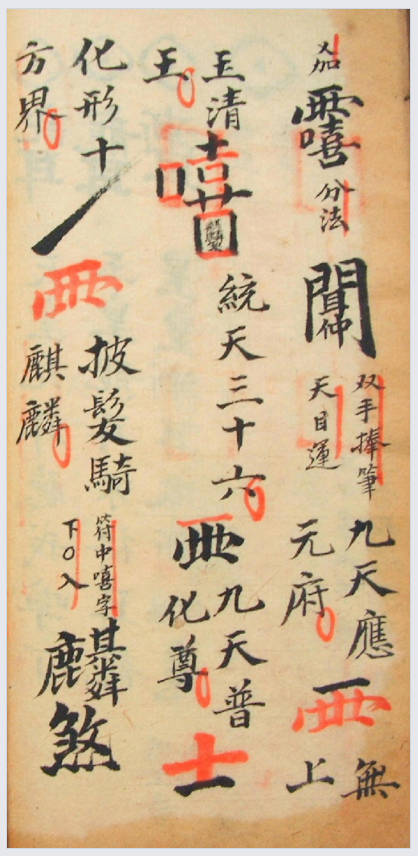 分法
双手捧筆
天目運
九天應
元府
無
上
玉清
王
統天三十六
九天普
化尊
化形十
方界
披髮騎
麒麟
符中嘻字
下〇入
煞